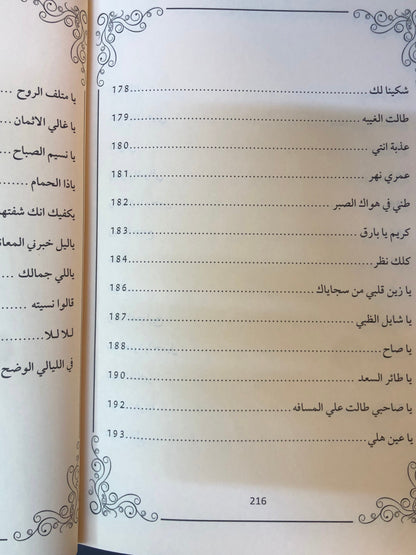 شكينا لك ........................ 178
طالت الغيبه ........................ 179
عذبة انتي ........................ 180
عمري نهر ........................ 181
طني في هواك الصبر ........................ 182
كريم يا بارق ........................ 183
كلك نظر ........................ 184
يا زين قلبي من سجاياك ........................ 186
يا شايل الظبي ........................ 187
يا صاح ........................ 188
يا طائر السعد ........................ 190
يا صاحبي طالت علي المسافه ........................ 192
يا عين هلي ........................ 193
216
يا متلف الروح ....
يا غالي الاثمان ....
يا نسيم الصباح ....
ياذا الحمام ........
يكفيك انك شفتها
ياليل خبرني
ياللي جمالك ....
قالوا نسيته .....
لـلا لـلا ..........
في الليالي الوضح